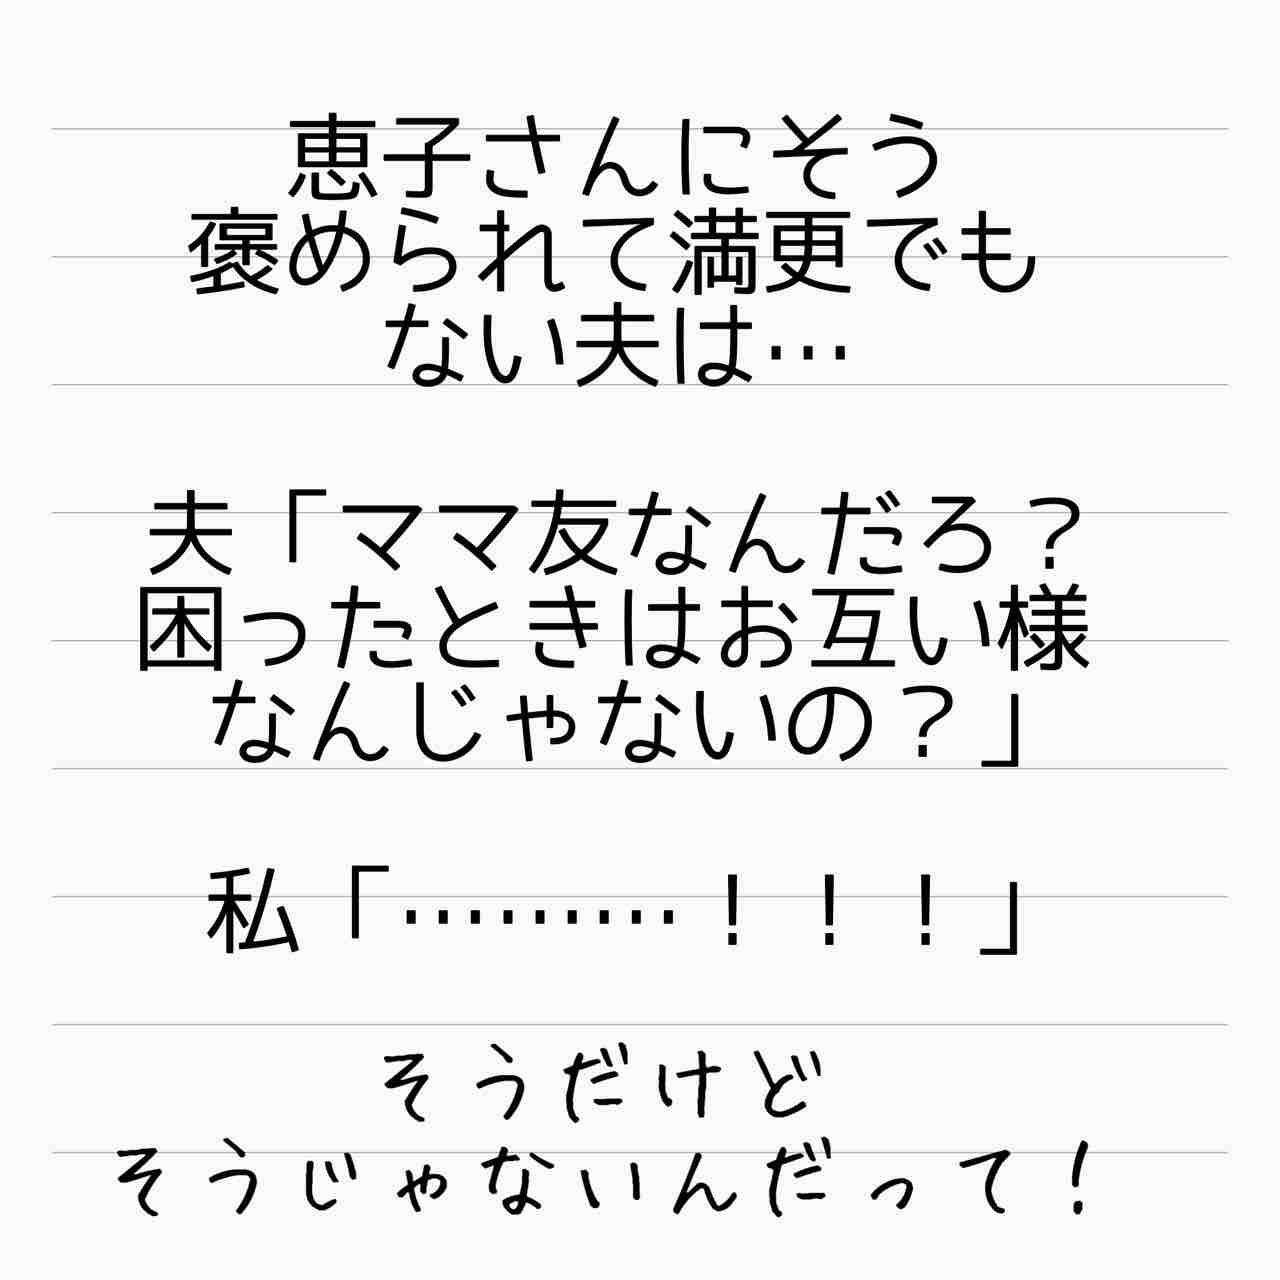 恵子さんにそう
褒められて満更でも
ない夫は…
夫「ママ友なんだろ？
困ったときはお互い様
なんじゃないの？」
私「………！！！」
そうだけど
そうじゃないんだって！